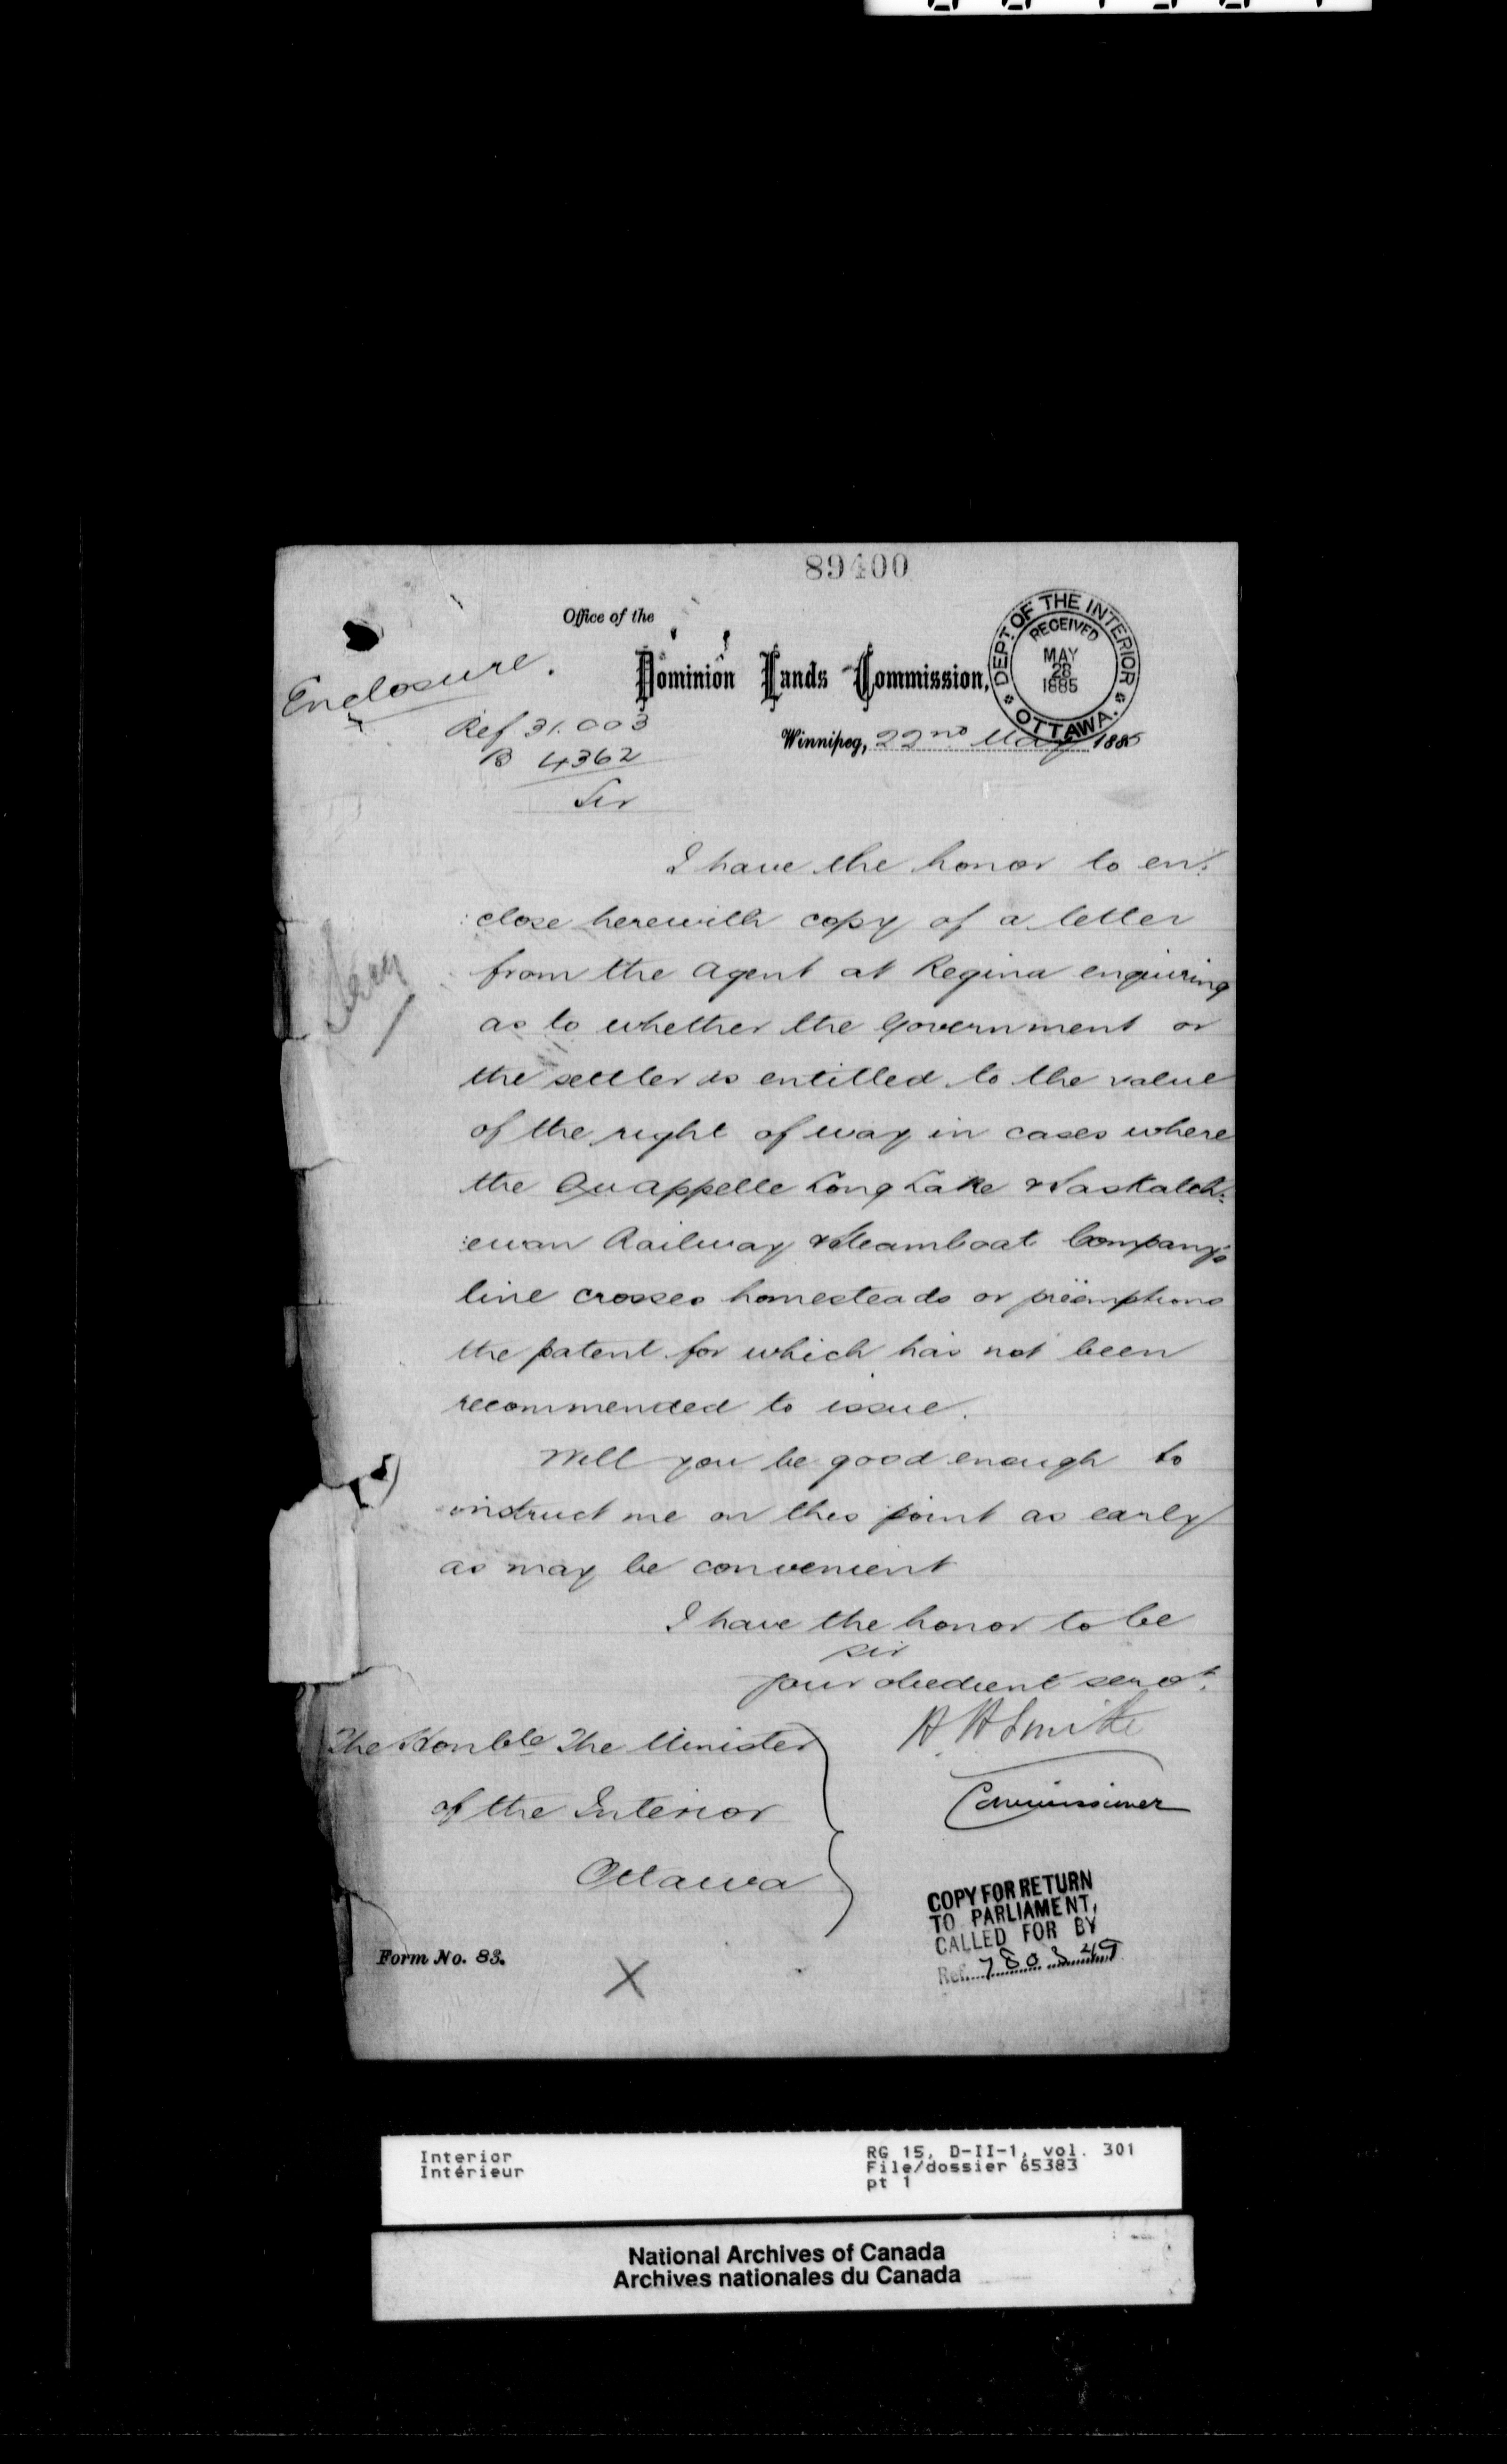 89400
Office of the
Dominion Lands Commission,
DEPT. OF THE INTERIOR
RECEIVED
MAY
28
1885
OTTAWA.
Enclosure.
Ref 31.003
B 4362
Winnipeg, 22nd May 1885
Sir
I have the honor to en:
:close herewith copy of a letter
from the Agent at Regina enquiring
as to whether the Government or
the settler is entitled to the value
of the right of way in cases where
the Qu'appelle Long Lake & Saskatch:
:ewan Railway & Steamboat Company's
line crosses homesteads or preëmptions
the patent for which has not been
recommended to issue.
Will you be good enough to
instruct me on this point as early
as may be convenient
I have the honor to be
sir
your obedient servt.
H. H. Smith
Commissioner
The Honble The Minister
of the Interior
Ottawa
Form No. 83.
X
COPY FOR RETURN
TO PARLIAMENT,
CALLED FOR BY
Ref.
Interior
Intérieur
RG 15, D-II-1, vol. 301
File/dossier 65383
pt 1
National Archives of Canada
Archives nationales du Canada